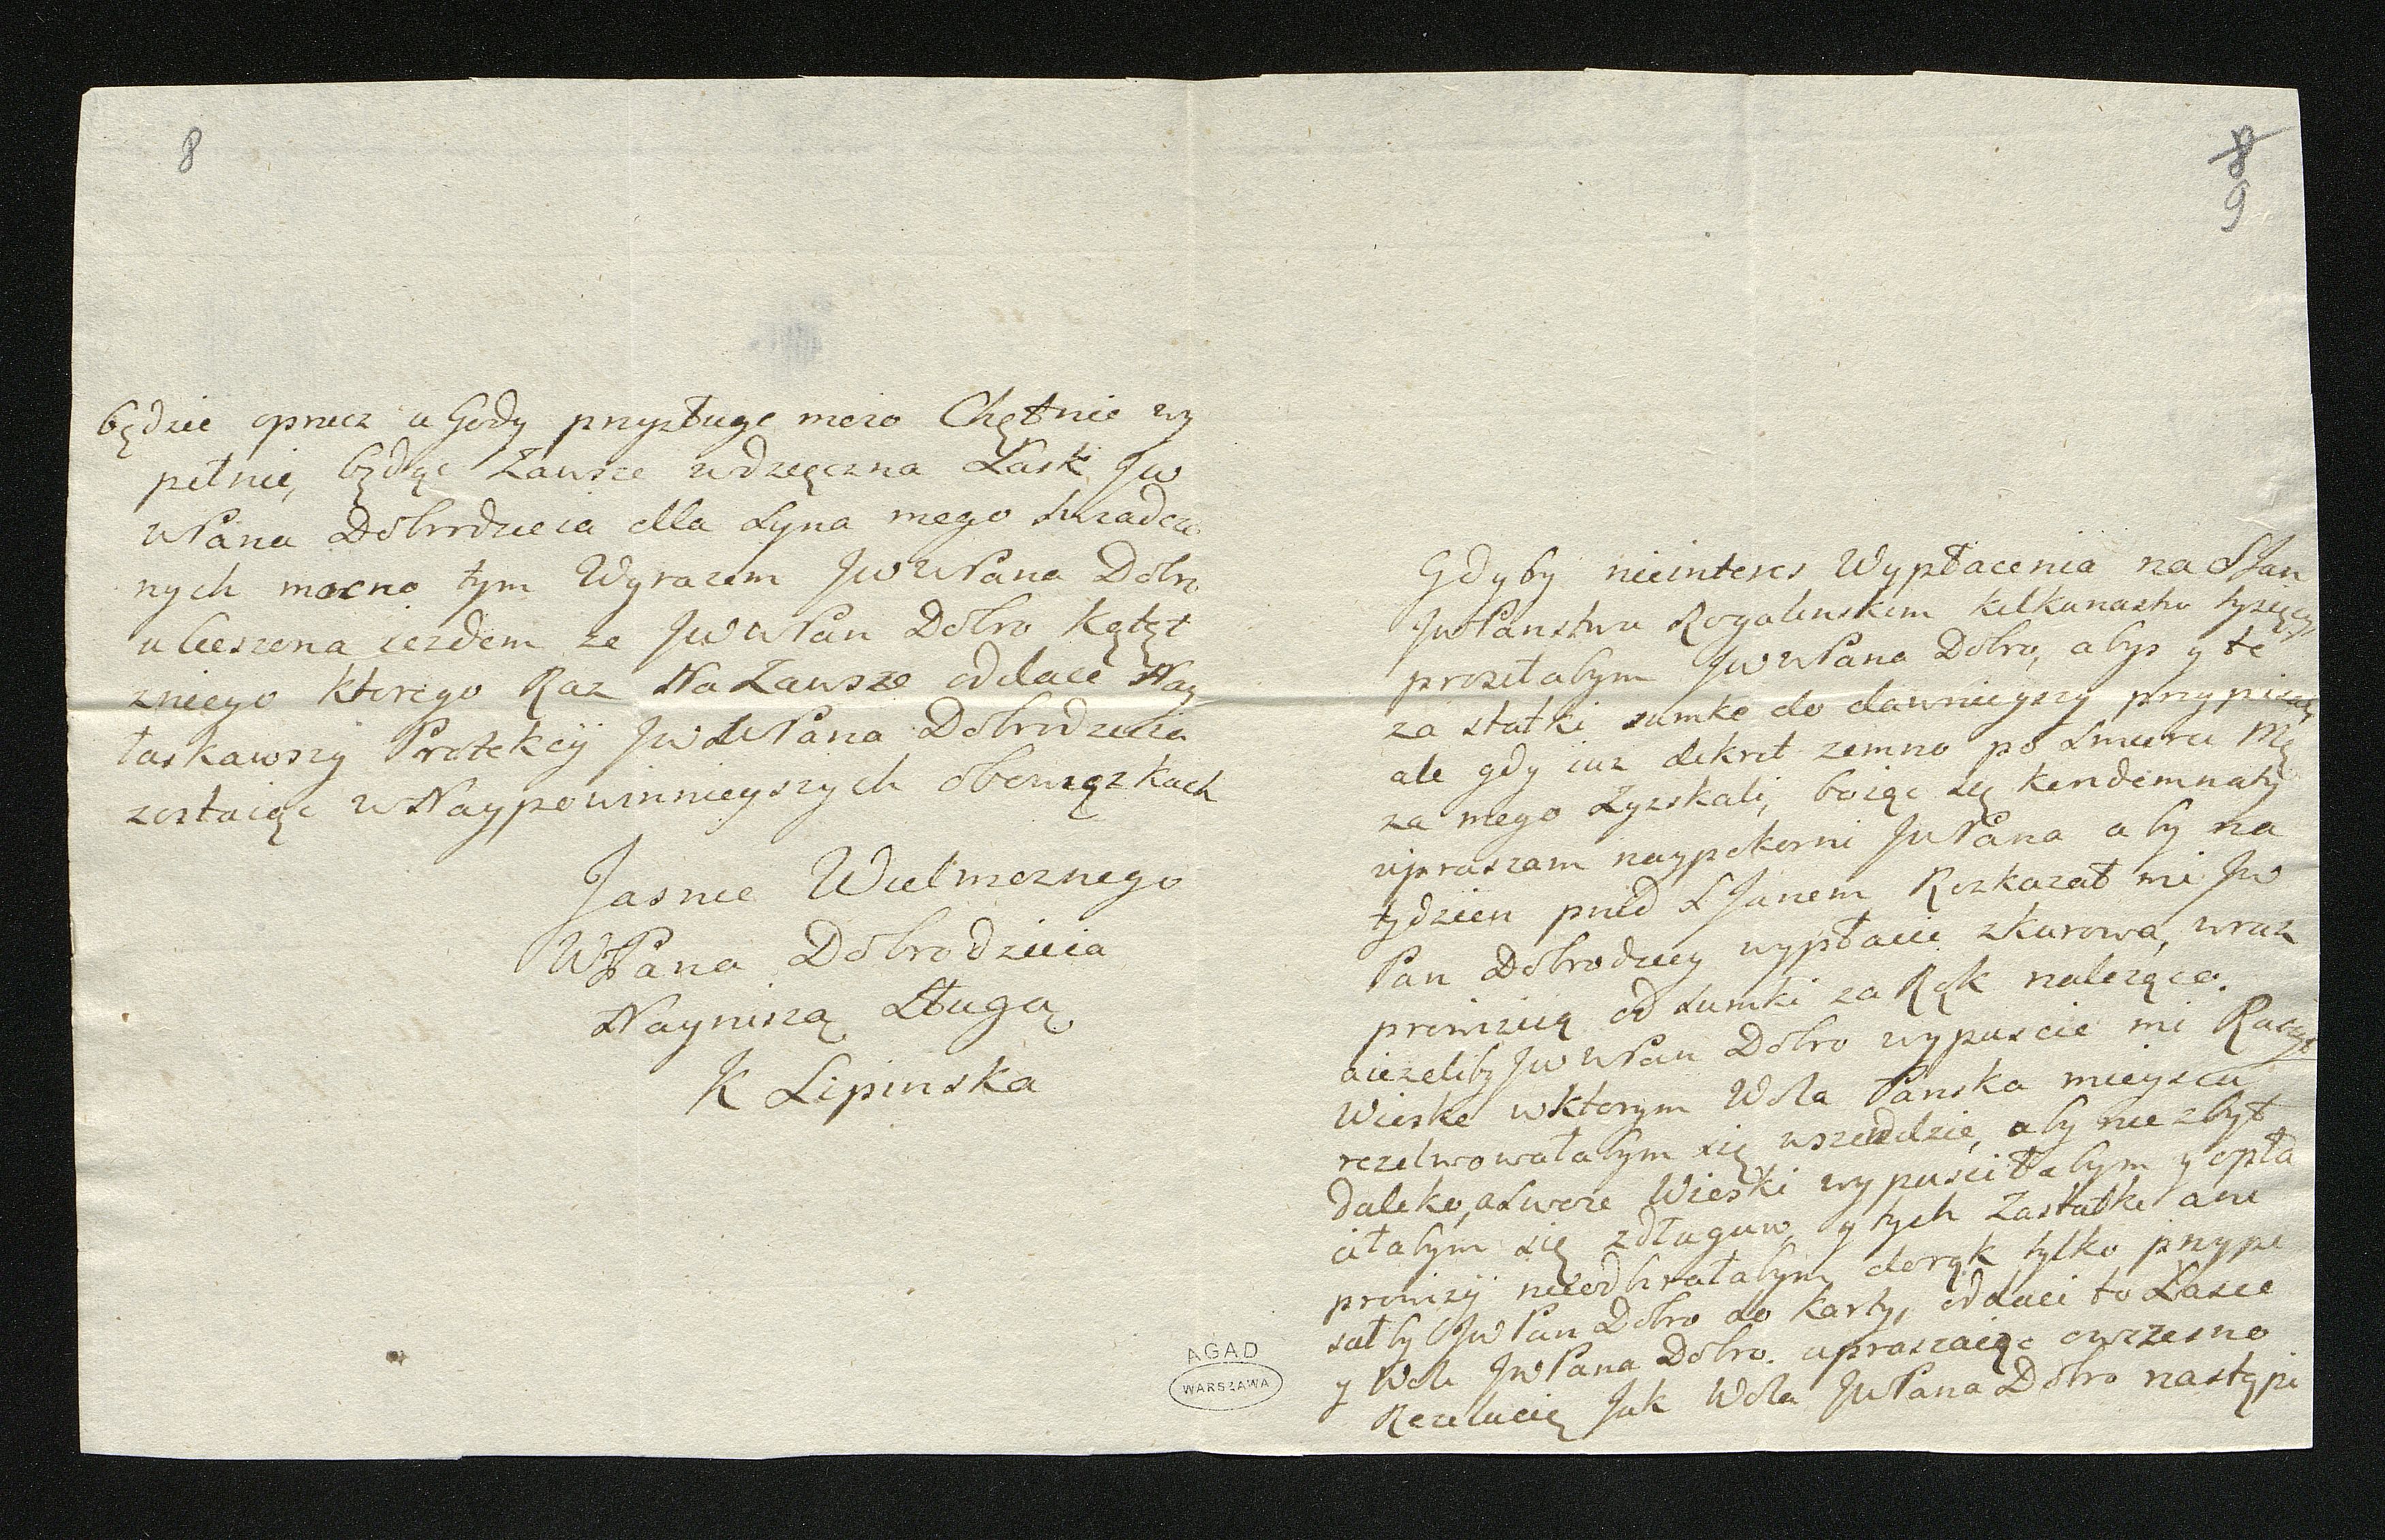 8
będzie oprucz u Gody przysługę moio Chętnie wy
pełnie, będąc Zawsze wdzięczna Łask Jw
WPana Dobrodzieia dla Syna mego swiadczo
nych mocno tym Wyrazem JwWPana Dobro
ucieszona iezdem ze JwWPan Dobro kątęt
zniego ktorego Raz Na Zawsze oddaie Nay
łaskawszy Protekcij JwWPana Dobrodzieia
zostaiąc wNaypowinnieyszych obowiązkach
Jasnie Wielmoznego
WPana Dobrodzieia
Nayniszą Sługą
K Lipinska
8
9
Gdyby nieinteres Wypłacenia na SJan
JwPanstwu Rogalinskim kilkunastu tysięcy
prosiłabym JwWPana Dobro, abys y te
za statki sumke do dawnieyszy przypisać
ale gdy iuz dekret zemno po Smierci Mę
za mego Zyzskali, boiąc się kondemnaty
upraszam naypokorni JwPana aby na
tydzien przed SJanem Rozkazał mi Jw
Pan Dobrodziey wypłacic zkarowa, wraz
prowizią od sumki za Rok nalezące.
aiezeliby JwWPan Dobro wypuscic mi Raczył
Wieske wktorym Wola Panska mieyscu
rezelwowałabym się wszendzie, aby nie zbyt
daleko, aswoie Wieski wypusciłabym y opła
ciłabym się zdługuw, y tych Zastatki ani
prowizij nieodbirałabym dorąk tylko przypi
sałby JwPan Dobro do karty, oddaci to Łasce
y Woli JwPana Dobro. upraszaiąc owczesno
Rezolucię Jak Wola JwPana Dobro nastąpi
AGAD
WARSZAWA